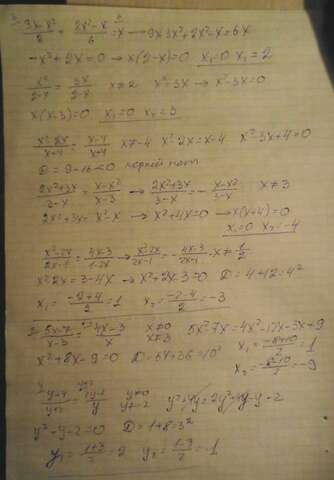 (3x-x²)/2 + (2x²-x)/6 = x → 9x-3x²+2x²-x=6x
-x²+2x=0 → x(2-x)=0 x₁=0 x₂=2
x²/(2-x) = 3x/(2-x) x≠2 x²=3x → x²-3x=0
x(x-3)=0 x₁=0 x₂=3
(x²-2x)/(x+4) = (x-4)/(x+4) x≠-4 x²-2x=x-4 x²-3x+4=0
D=9-16<0 корней нет
(2x²+3x)/(3-x) = (x-x²)/(x-3) → (2x²+3x)/(3-x) = -(x-x²)/(3-x) x≠3
2x²+3x=x²-x → x²+4x=0 → x(x+4)=0
x₁=0 x₂=-4
(x²-2x)/(2x-1) = (4x-3)/(1-2x) → (x²-2x)/(2x-1) = -(4x-3)/(2x-1) x≠1/2
x²-2x=3-4x → x²+2x-3=0 D=4+12=4²
x₁=(-2+4)/2=1 x₂=(-2-4)/2=-3
2. (5x-7)/(x-3) = (4x-3)/x x≠0 x≠3 5x²-7x=4x²-12x-3x+9
x²+8x-9=0 D=64+36=10² x₁=(-8+10)/2=1
x₂=(-8-10)/2=-9
y²-y-2=0 D=1+8=3²
y₁=(1+3)/2=2 y₂=(1-3)/2=-1